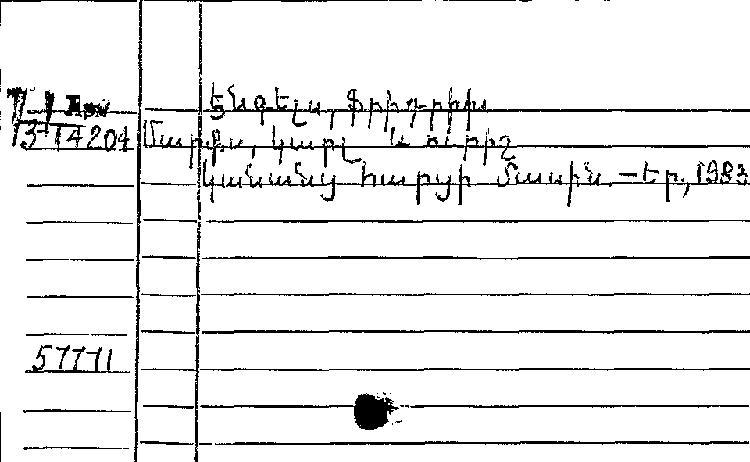 Էնգելս, Ֆրիդրիխ
13-14204 Մարքս, Կարլ և ուրիշ
Կանանց հարցի մասին. – Եր., 1983
57771